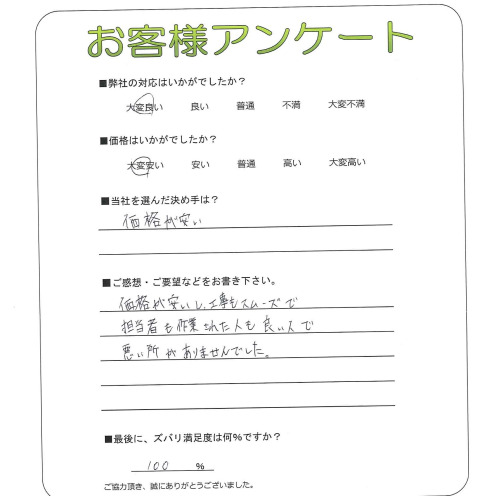 お客様アンケート
■弊社の対応はいかがでしたか?
大変良い 良い 普通 不満 大変不満
■価格はいかがでしたか?
大変安い 安い 普通 高い 大変高い
■当社を選んだ決め手は?
価格が安い
■ご感想・ご要望などをお書き下さい。
価格が安いし、工事もスムーズで
担当者も作業された人も良い人で
悪い所がありませんでした。
■最後に、ズバリ満足度は何%ですか?
100 %
ご協力頂き、誠にありがとうございました。